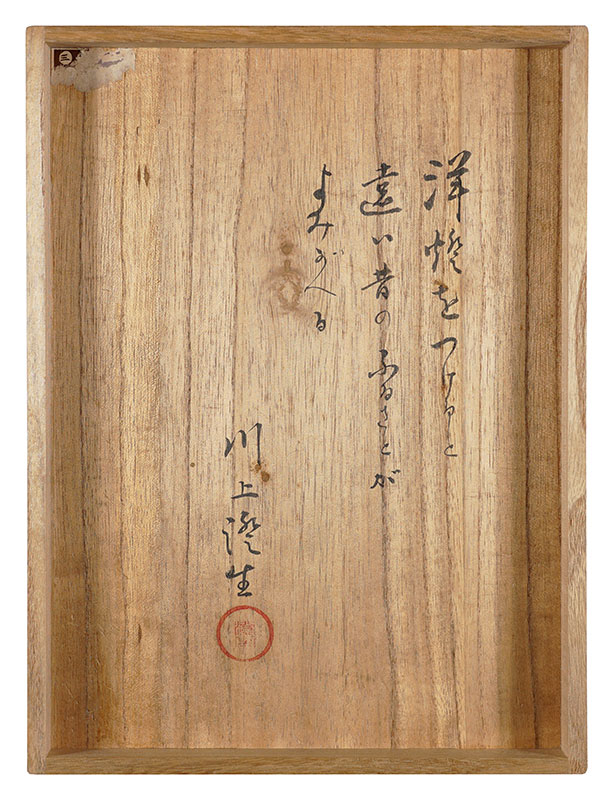 洋燈をつけると
遠い昔のふるさとが
よみがへる
川上澄生